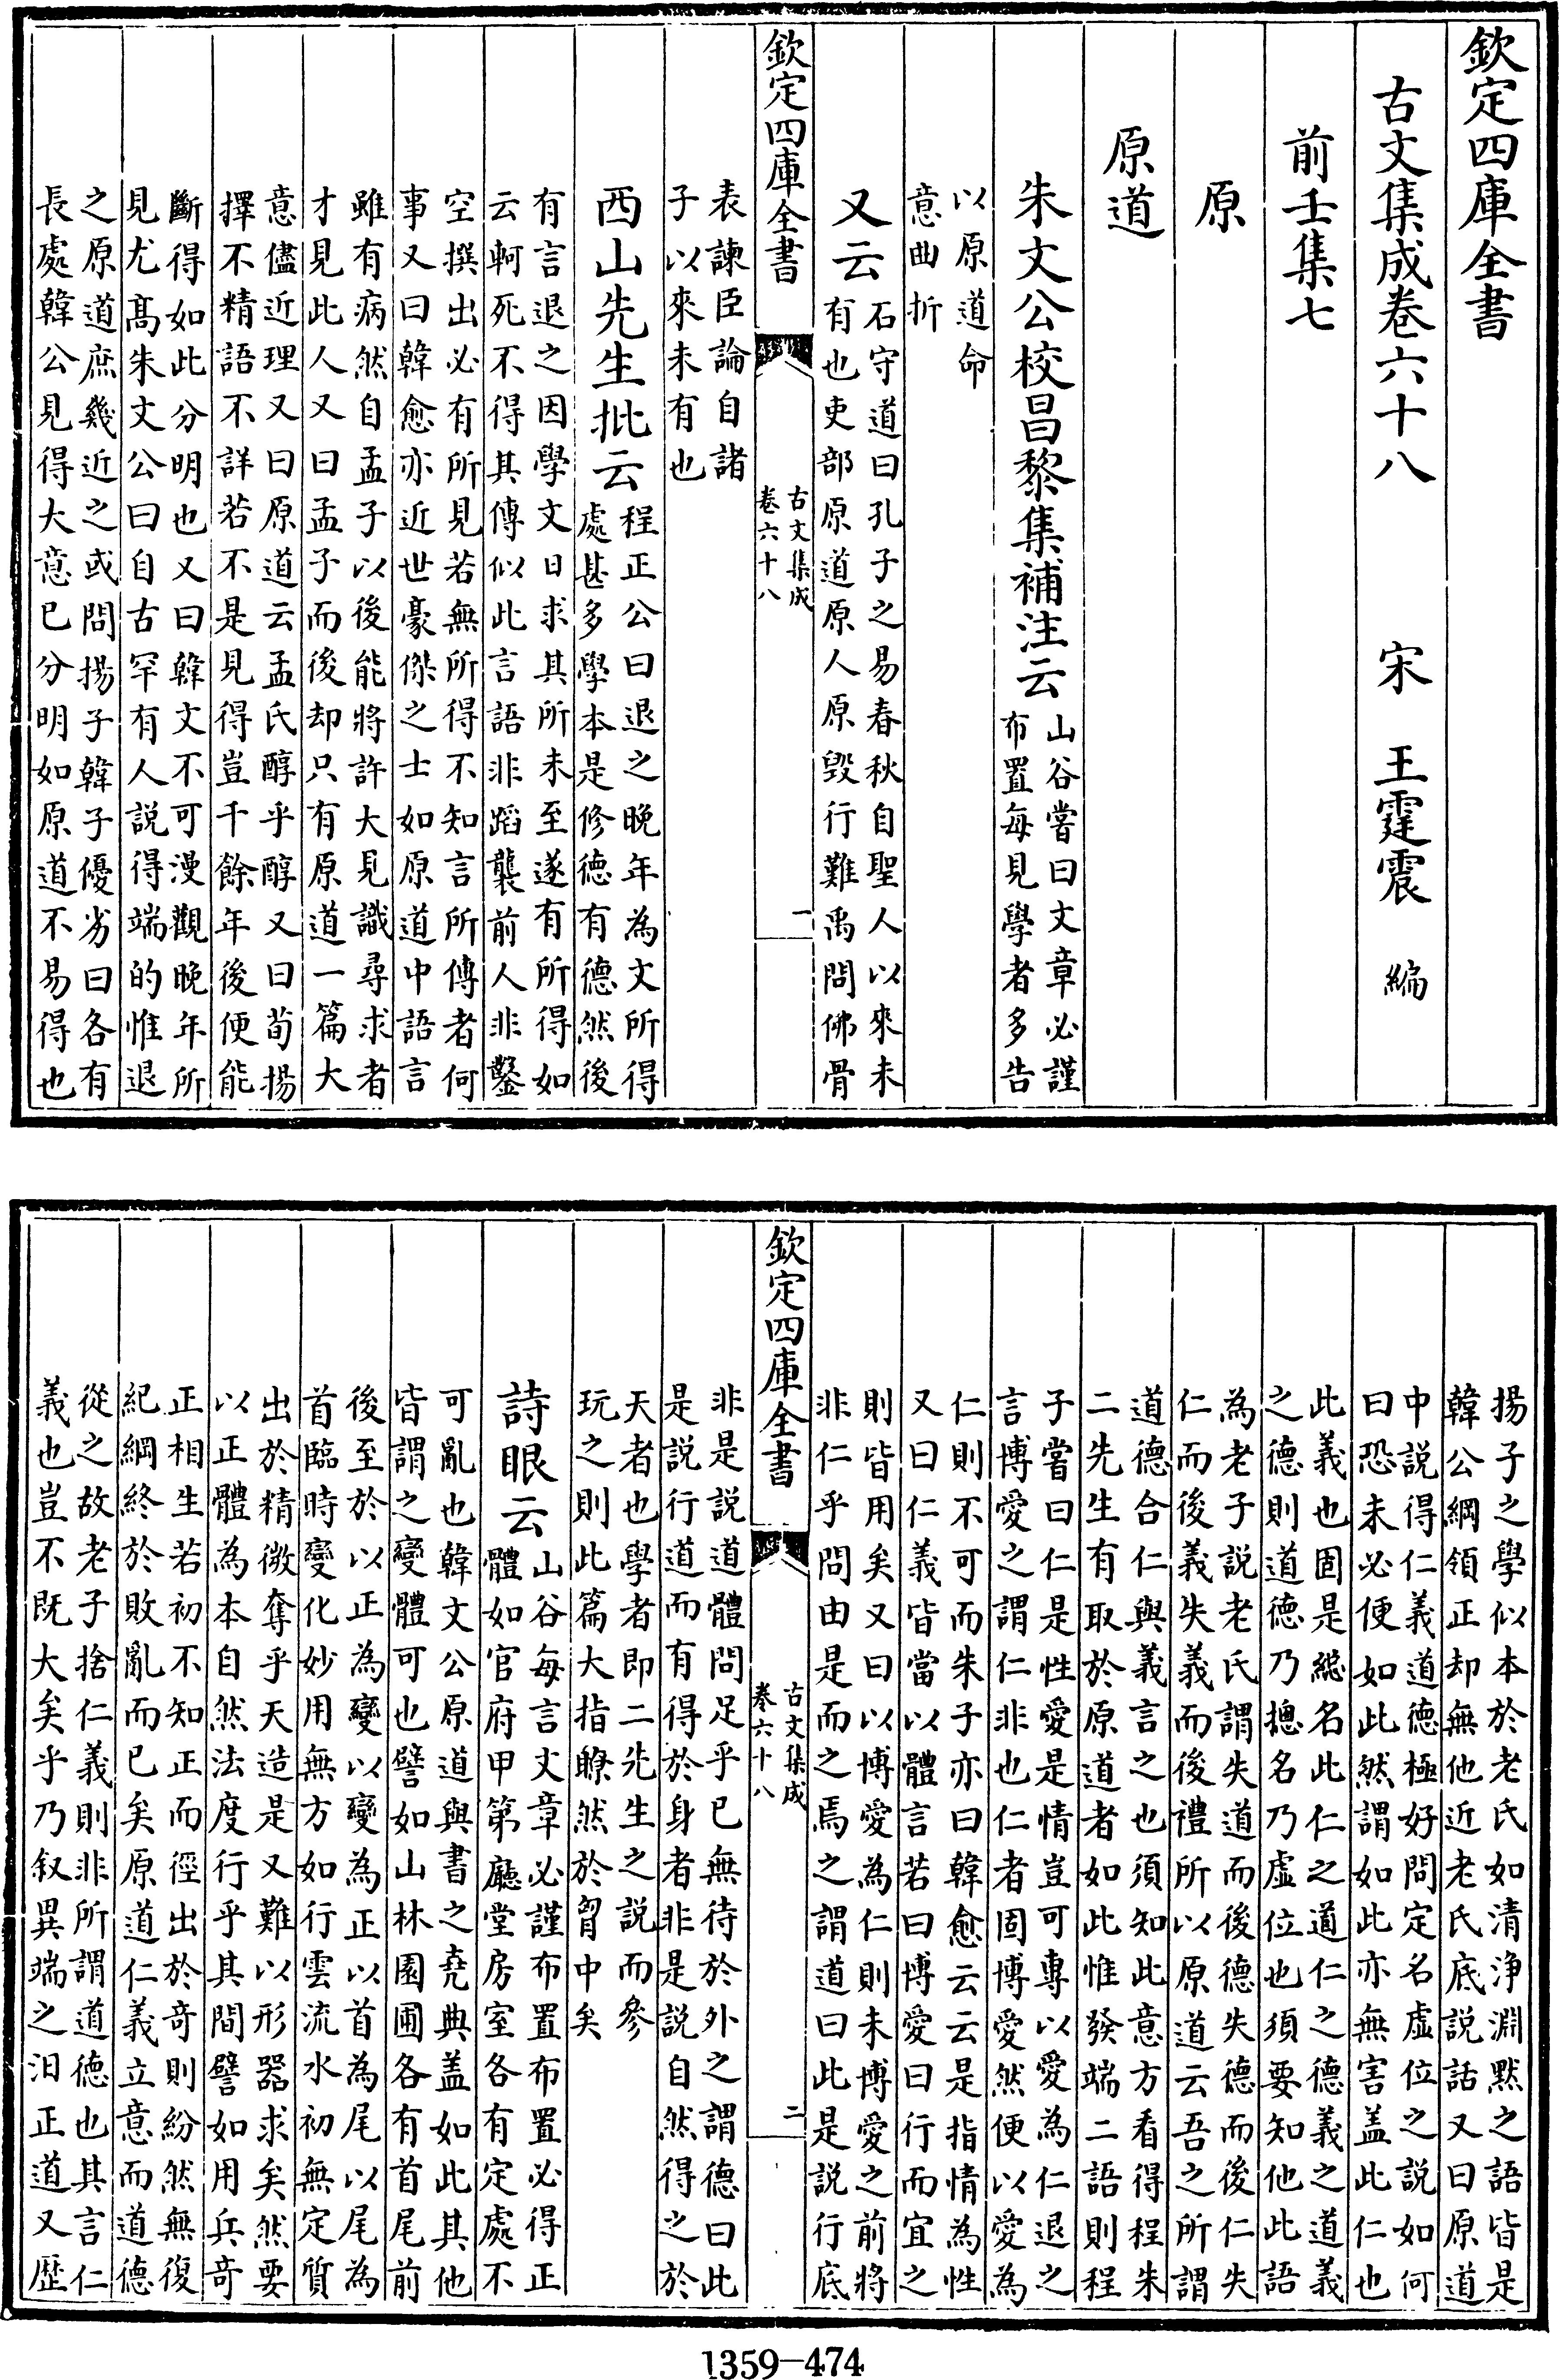 欽定四庫全書
古文集成卷六十八　宋　王霆震　編
前壬集七
原
原道
朱文公校昌黎集補注云山谷嘗曰文章必謹
布置每見學者多告
以原道命
意曲折
又云石守道曰孔子之易春秋自聖人以來未
有也吏部原道原人原毀行難禹問佛骨
欽定四庫全書
古文集成
卷六十八
一
表諫臣論自諸
子以來未有也
西山先生批云程正公曰退之晚年為文所得
處甚多學本是修德有德然後
有言退之因學文日求其所未至遂有所得如
云軻死不得其傳似此言語非蹈襲前人非鑿
空撰出必有所見若無所得不知言所傳者何
事又曰韓愈亦近世豪傑之士如原道中語言
雖有病然自孟子以後能將許大見識尋求者
才見此人又曰孟子而後却只有原道一篇大
意儘近理又曰原道云孟氏醇乎醇又曰荀揚
擇不精語不詳若不是見得豈千餘年後便能
斷得如此分明也又曰韓文不可漫觀晚年所
見尤髙朱文公曰自古罕有人説得端的惟退
之原道庶幾近之或問揚子韓子優劣曰各有
長處韓公見得大意已分明如原道不易得也
揚子之學似本於老氏如清淨淵默之語皆是
韓公綱領正却無他近老氏底説話又曰原道
中説得仁義道德極好問定名虛位之説如何
曰恐未必便如此然謂如此亦無害盖此仁也
此義也固是総名此仁之道仁之德義之道義
之德則道德乃摠名乃虛位也須要知他此語
為老子説老氏謂失道而後德失德而後仁失
仁而後義失義而後禮所以原道云吾之所謂
道德合仁與義言之也須知此意方看得程朱
二先生有取於原道者如此惟發端二語則程
子嘗曰仁是性愛是情豈可專以愛為仁退之
言博愛之謂仁非也仁者固博愛然便以愛為
仁則不可而朱子亦曰韓愈云云是指情為性
又曰仁義皆當以體言若曰博愛曰行而宜之
則皆用矣又曰以博愛為仁則未博愛之前將
非仁乎問由是而之焉之謂道曰此是説行底
欽定四庫全書
古文集成
卷六十八
二
非是説道體問足乎已無待於外之謂德曰此
是説行道而有得於身者非是説自然得之於
天者也學者即二先生之説而參
玩之則此篇大指瞭然於胷中矣
詩眼云山谷每言文章必謹布置布置必得正
體如官府甲第廳堂房室各有定處不
可亂也韓文公原道與書之堯典盖如此其他
皆謂之變體可也譬如山林園圃各有首尾前
後至於以正為變以變為正以首為尾以尾為
首臨時變化妙用無方如行雲流水初無定質
出於精微奪乎天造是又難以形器求矣然要
以正體為本自然法度行乎其間譬如用兵奇
正相生若初不知正而徑出於奇則紛然無復
紀綱終於敗亂而已矣原道仁義立意而道德
從之故老子捨仁義則非所謂道德也其言仁
義也豈不既大矣乎乃叙異端之汨正道又歷
1359-474